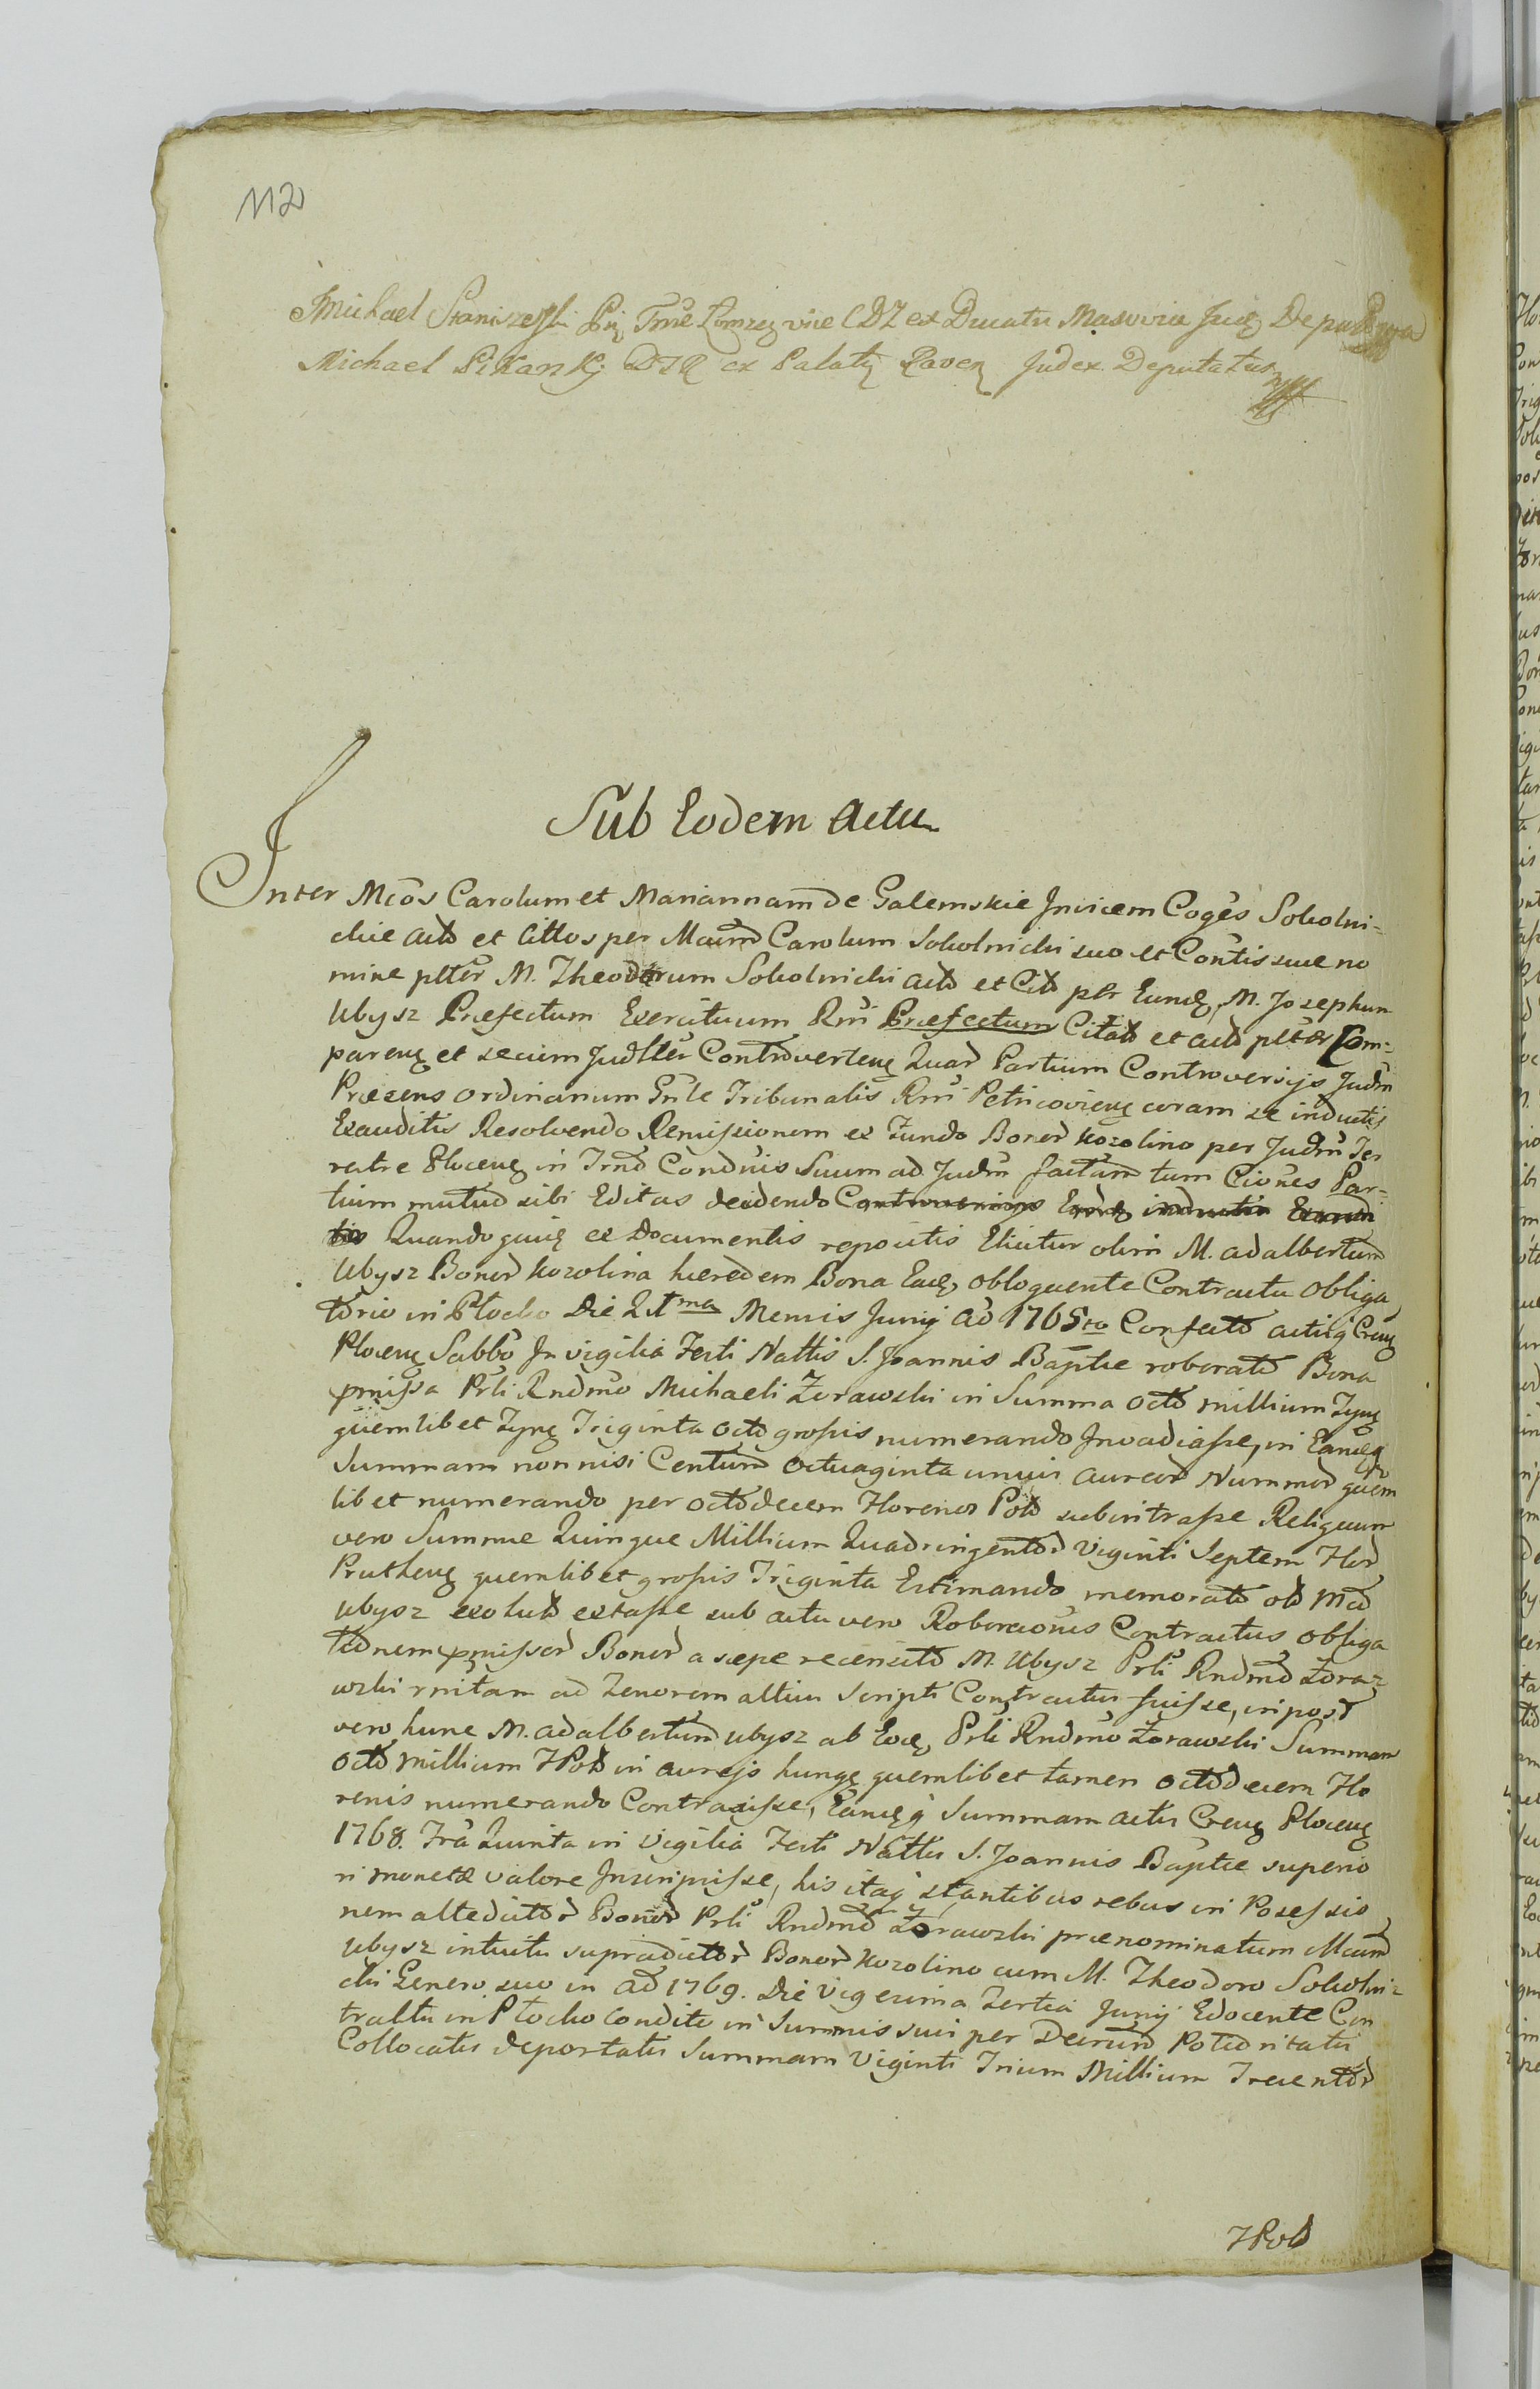 112
Michael Staniszewski Trrae Lomzen vice CDZ ex Ducatu Masoviae Jud Deputatus
Michael Pikarski DTR ex Palatu Raven Judex Deputatus
Sub Eodem Actu
Inter Mcos Carolum et Mariannam de Galemskie Invicem Coges Sokolni-
ckie acto et Cittos per Mcum Carolum Sokolnicki suo et Contis suae no
mine plter M. Theodorum Sokolnicki acto et Cito per Eund M. Josephum
Ubysz Praefectum Exercituum Rni Praefectum Citato et acto plter Com-
paren et secum Judlter Controverten Quar Partium Controversijs Judm
Praesens ordinarium Gnle Tribunalis Rni Petricovien coram se inductis
Exauditis Resolvendo Remissionem ex Fundo Bonor Kozolino per Judm Ter
restre Plocen in Trno Condnis Suum ad Judm factam tum Ciones Par-
tium mutuo sibi Editas decidendo Controversijs inductis Exaudi
tis Quandoquid ex Documentis repositis Elicitur olim M. Adalbertum
Ubysz Bonor Kozolina haeredem Bona Ead obloquente Contractu Obliga
torio in Plocko Die 21ma Mensis Junij Ao 1765to Confecto actisq Cren
Plocen Sabbo In vigilia Festi Nattis S. Joannis Baptae roborato Bona
pmissa Prli Rndmo Michaeli Zorawski in Summa octo millium Tyn
quemlibet Tynf Triginta octo grossis numerando Invadiasse, in Eamq
Summam nonnisi Centum octuaginta unius aureor Nummor quem
libet numerando per octodecem Florenos Pol subintrasse Reliquum
vero Summae Quinque Millium Quadringentor Viginti Septem Flor
Pruthen quemlibet grossis Triginta Estimando memorato olo Mco
Ubysz exoluto extasse sub actu vero Roboraconis Contractus obliga
tionem pmissor Bonor a saepe recensito M. Ubysz Prli Rndmo Zora-
wski rnitam ad Tenorem altius Scripti Contractus fuisse, in post
vero hunc M. Adalbertum Ubysz ab Eod Prli Rndmo Zorawski Summam
Octo millium FPol in aurejs hung quemlibet tamen octodecem Flo
renis numerando Contraxisse, Eamq Summam actis Cren Plocen
1768. Fra Quinta in Vigilia Festi Nattis S. Joannis Baptae superio
ri monetae valore Inscripsisse, his itaq stantibus rebus in Possessio
nem altedictor Bonor Prli Rndmo Zorawski praenominatum Mcum
Ubysz intuitu supradictor Bonor Kozolino cum M. Theodoro Sokolni-
cki Genero suo in Ao 1769. Die Vigesima Tertia Junij Edocente Con
tractu in Plocko Condito in Summis suis per Decrum Potioritatis
Collocatis deportatis Summam Viginti Trium Millium Trecentor
FPol